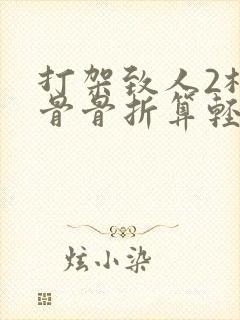 打架致人2
骨骨折算軽
炫小染